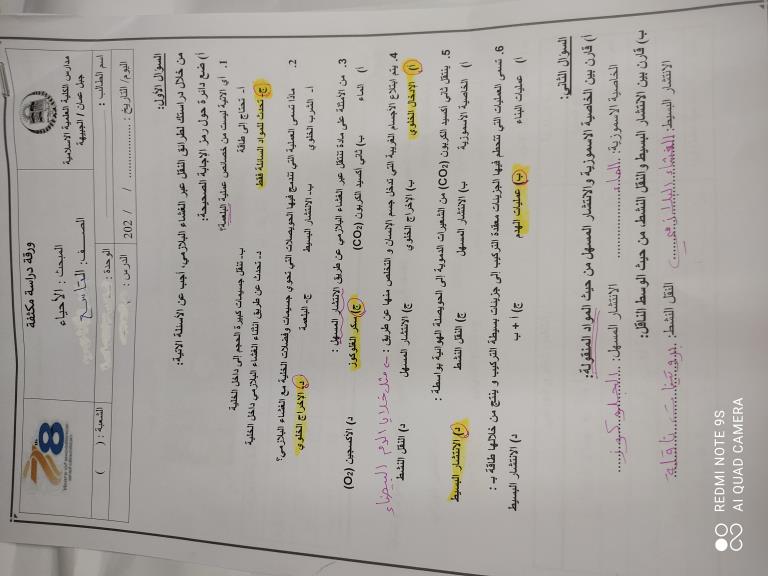 مدارس الكلية العلمية الاسلامية
جبل عمان / الجبيهة
ورقة دراسة مكثفة
78
اسم الطالب :
المبحث : الأحياء
الصف : التاسع
الوحدة :
الشعبة : ( )
اليوم/ التاريخ : / / 202
الدرس :
السؤال الأول:
من خلال دراستك لطرائق النقل عبر الغشاء البلازمي، أجب عن الأسئلة الآتية:
أ) ضع دائرة حول رمز الإجابة الصحيحة:
1. أي الآتية ليست من خصائص عملية البلعمة؟
أ- تحتاج إلى طاقة
ب- تنقل جسيمات كبيرة الحجم إلى داخل الخلية
ج- تحدث للمواد السائلة فقط
د- تحدث عن طريق انثناء الغشاء البلازمي داخل الخلية
2. ماذا تسمى العملية التي تندمج فيها الحويصلات التي تحوي جسيمات وفضلات الخلية مع الغشاء البلازمي؟
أ- الشرب الخلوي ب- الانتشار البسيط ج- البلعمة د- الإخراج الخلوي
3. من الأمثلة على مادة تنتقل عبر الغشاء البلازمي عن طريق الانتشار المسهل :
أ) الماء ب) ثاني اكسيد الكربون (CO₂) ج) سكر الغلوكوز د) الاكسجين (O₂)
4. يتم ابتلاع الأجسام الغريبة التي تدخل جسم الإنسان و التخلص منها عن طريق : مثل خلايا الدم البيضاء
أ) الإدخال الخلوي ب) الإخراج الخلوي ج) الانتشار المسهل د) النقل النشط
5. ينتقل ثاني اكسيد الكربون (CO₂) من الشعيرات الدموية إلى الحويصلة الهوائية بواسطة :
أ) الخاصية الاسموزية ب) الانتشار المسهل ج) النقل النشط د) الانتشار البسيط
6. تسمى العمليات التي تتحطم فيها الجزيئات معقدة التركيب إلى جزيئات بسيطة التركيب و ينتج من خلالها طاقة ب :
أ) عمليات البناء ب) عمليات الهدم ج) أ + ب د) الانتشار البسيط
السؤال الثاني:
أ) قارن بين الخاصية الاسموزية والانتشار المسهل من حيث المواد المنقولة:
الخاصية الاسموزية: الماء الانتشار المسهل: الجلوكوز
ب) قارن بين الانتشار البسيط والنقل النشط، من حيث الوسط الناقل:
الانتشار البسيط: الغشاء البلازمي النقل النشط: بروتينات ناقلة
REDMI NOTE 9S
AI QUAD CAMERA